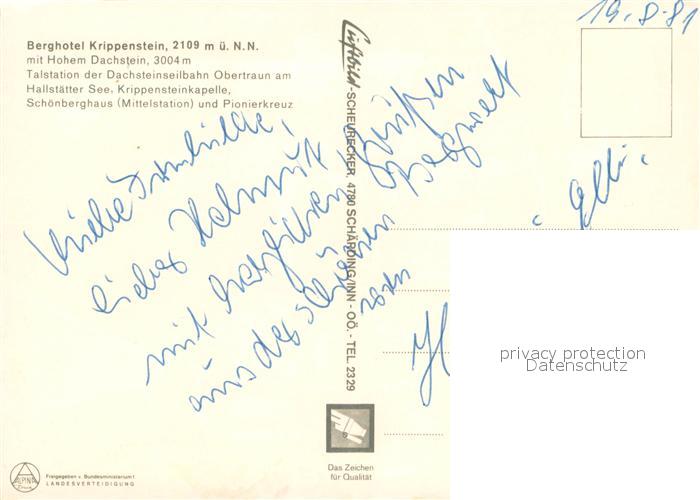 19.8.81
Berghotel Krippenstein, 2109 m ü. N.N.
mit Hohem Dachstein, 3004 m
Talstation der Dachsteinseilbahn Obertraun am
Hallstätter See, Krippensteinkapelle,
Schönberghaus (Mittelstation) und Pionierkreuz
Luftbild-SCHEURECKER, 4780 SCHÄRDING/INN - OÖ. - TEL. 2329
Liebe Irmhilde,
lieber Helmut
mit herzlichen Grüßen
aus der schönen Bergwelt
von
Elli.
privacy protection
Datenschutz
Das Zeichen
für Qualität
ALPINA
Freigegeben v. Bundesministerium f.
LANDESVERTEIDIGUNG